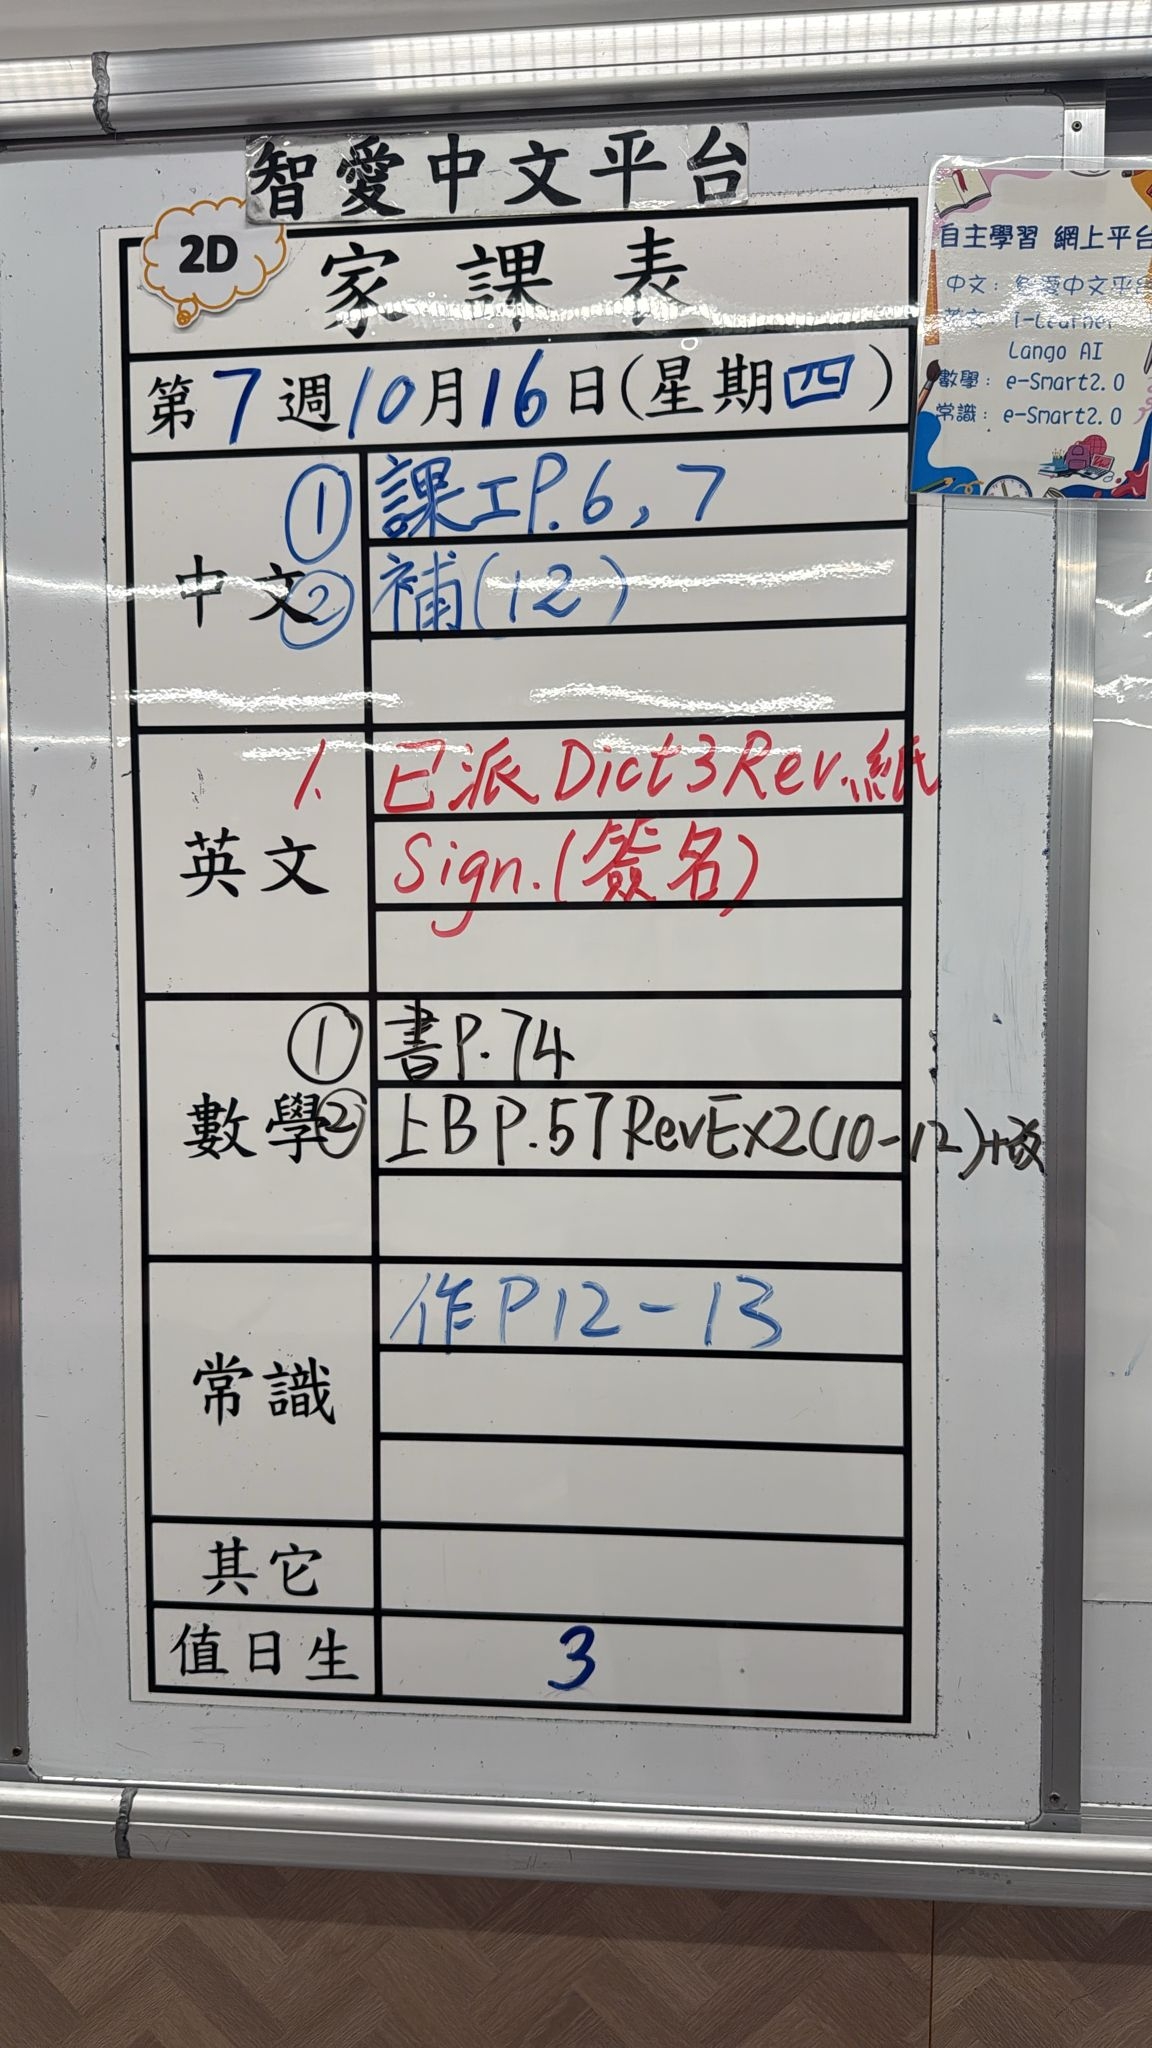 智愛中文平台
2D
家課表
第7週10月16日(星期四)
中文
① 課工P.6,7
② 補(12)
英文
1. 已派Dict3Rev.紙
Sign.(簽名)
數學
① 書P.74
② 上BP.57RevEx2(10-12)+改
常識
作P12-13
其它
值日生
3
自主學習 網上平台
中文: 智愛中文平台
英文: i-Learner
Lango AI
數學: e-Smart2.0
常識: e-Smart2.0